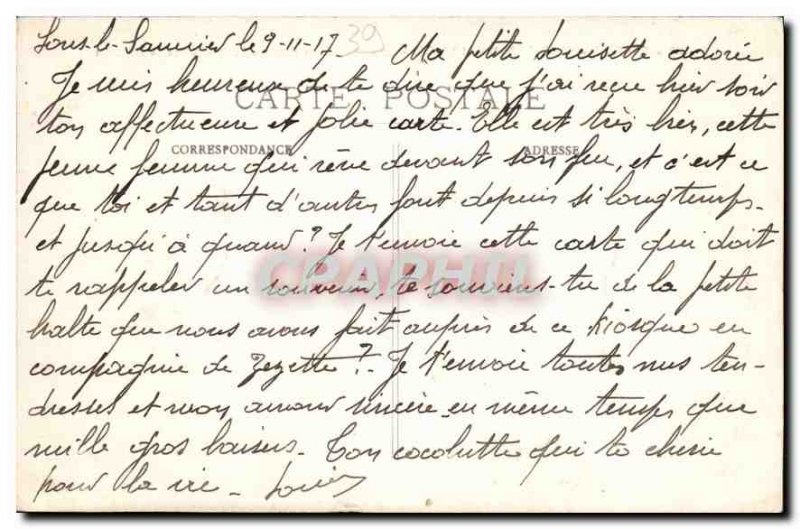 Lons-le-Saunier le 9-11-17 39 Ma petite Louisette adorée
Je suis heureux de te dire que j'ai reçu hier soir
CARTE POSTALE
ton affectueuse et jolie carte. Elle est très bien, cette
CORRESPONDANCE ADRESSE
jeune femme qui rêve devant son feu, et c'est ce
que toi et tant d'autres font depuis si longtemps.
et jusqu'à quand? Je t'envoie cette carte qui doit
te rappeler un souvenir, te souviens-tu de la petite
CPAPHIL
halte que nous avons fait auprès de ce Kiosque en
compagnie de Zezette?.. Je t'envoie toutes mes ten-
dresses et mon amour sincère en même temps que
mille gros baisers. Ton qui te chérie
pour la vie - Louis